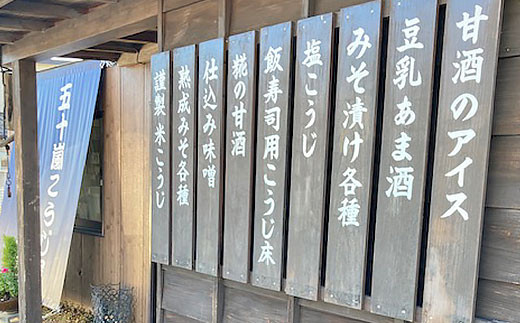 甘酒のアイス
豆乳あま酒
みそ漬け各種
塩こうじ
飯寿司用こうじ床
糀の甘酒
仕込み味噌
熟成みそ各種
謹製 米こうじ
五十嵐こうじ